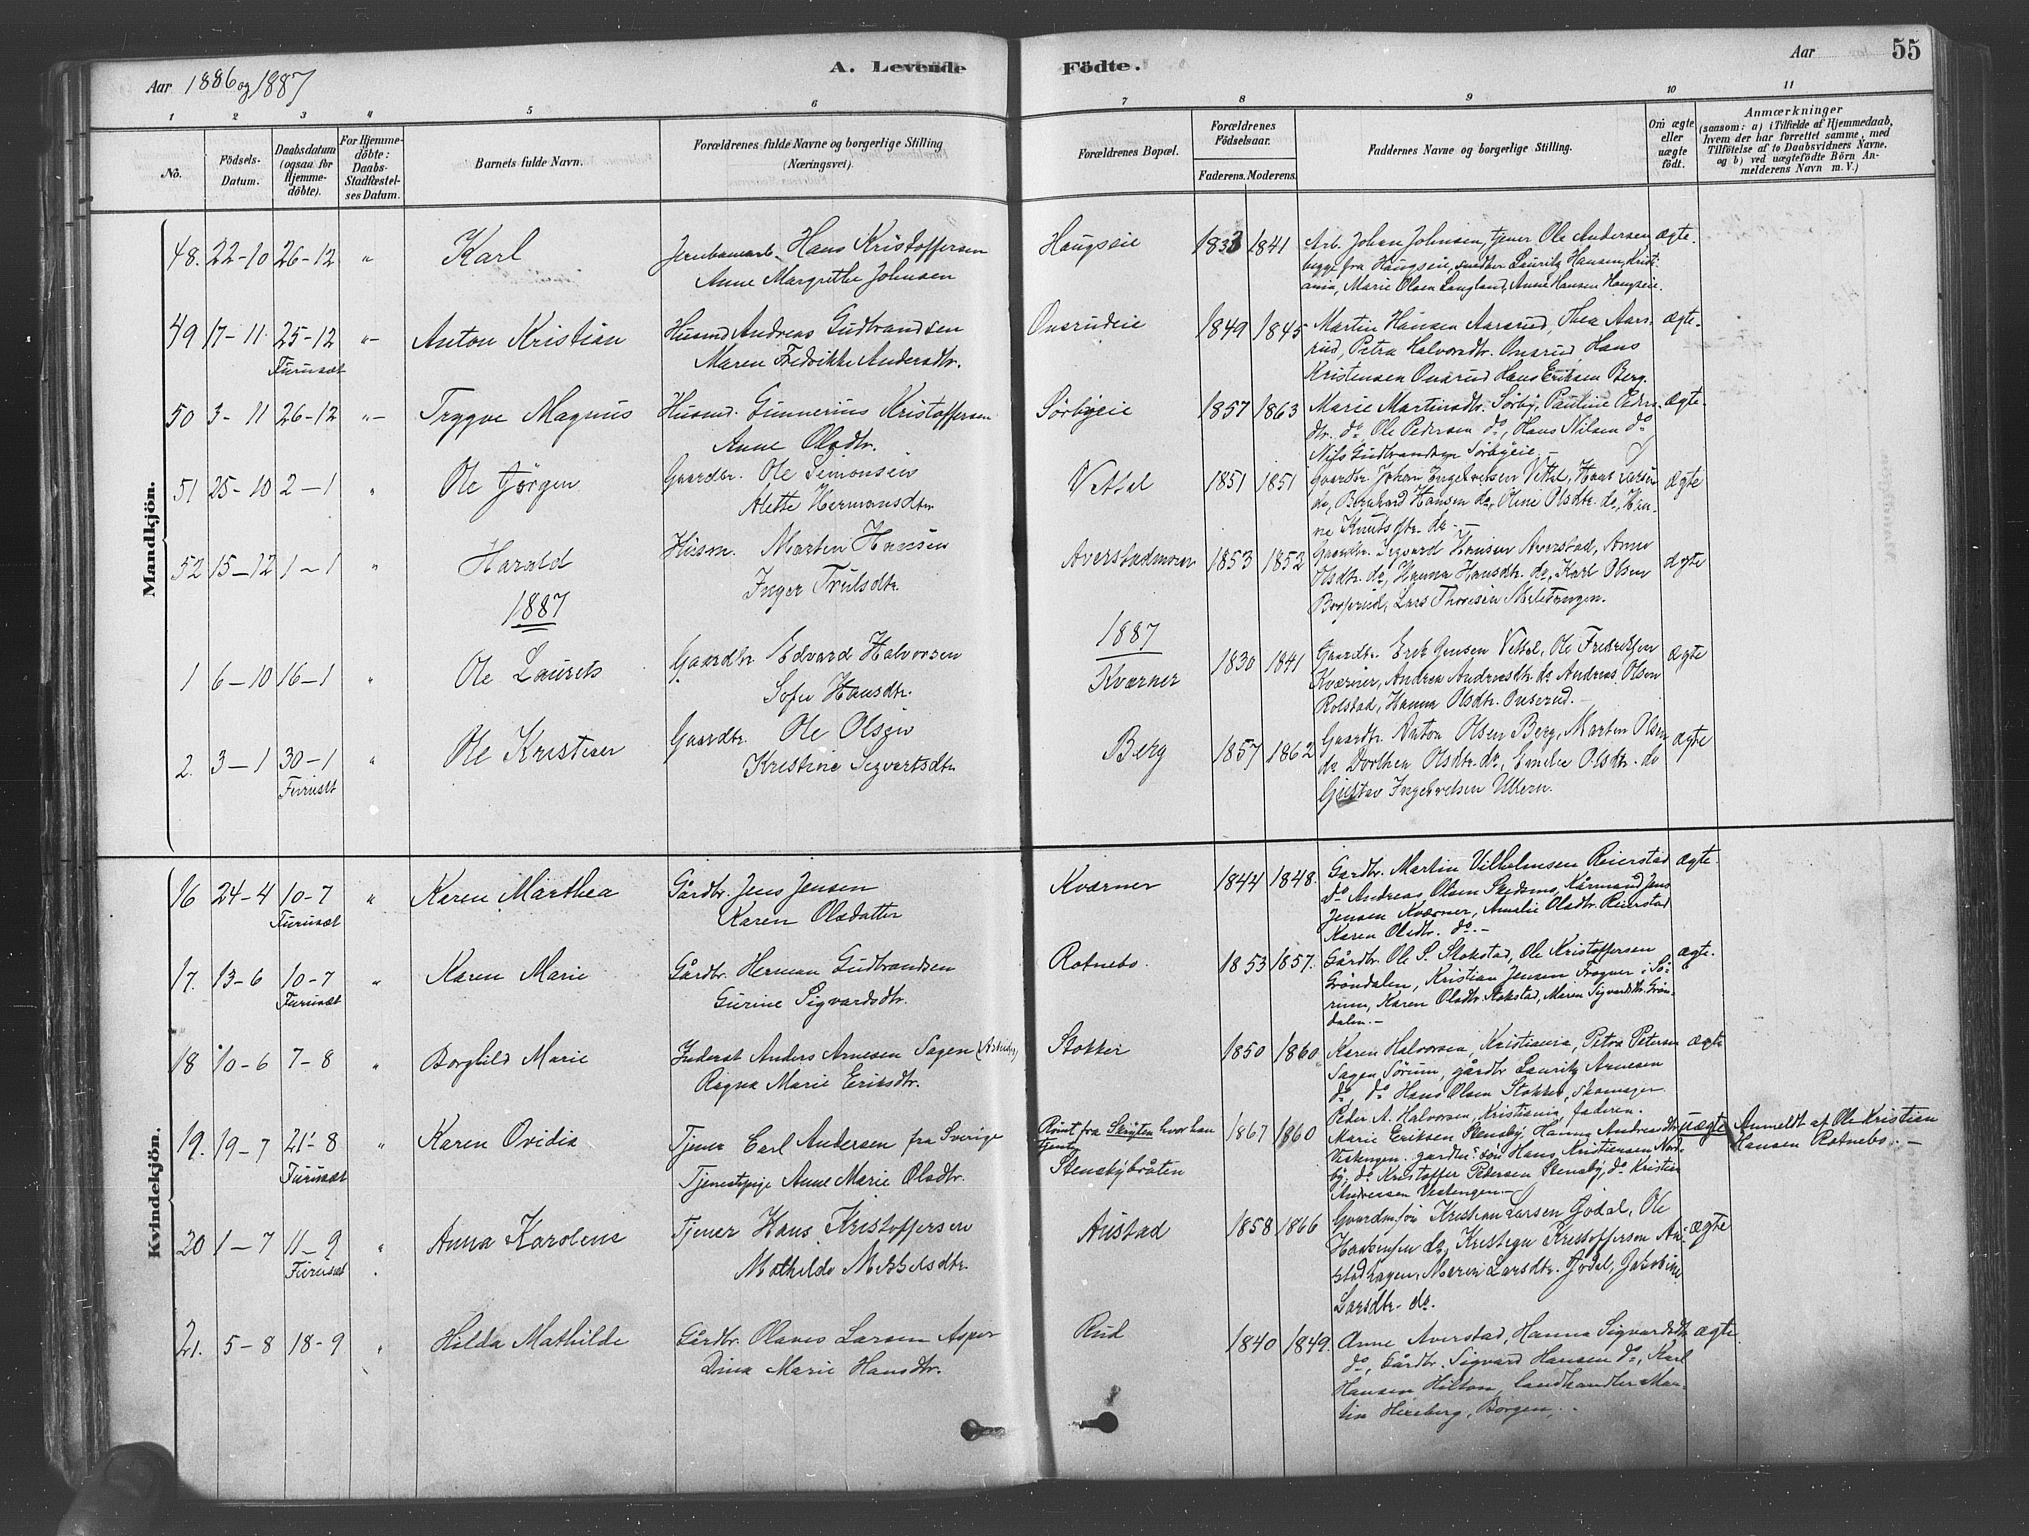 Aar 1886 og 1887
A. Levende Födte.
Aar
55
1 2 3 4 5 6 7 8 9 10 11
No.
Födsels-Datum.
Daabsdatum (ogsaa for Hjemme-döbte).
For Hjemme-döbte: Daabs-Stadfæstel-ses Datum.
Barnets fulde Navn.
Forældrenes fulde Navne og borgerlige Stilling (Næringsvei).
Forældrenes Bopæl.
Forældrenes Födselsaar.
Faderens. Moderens.
Faddernes Navne og borgerlige Stilling.
Om ægte eller uægte födt.
Anmærkninger (saasom: a) i Tilfælde af Hjemmedaab, hvem der har forrettet samme, med Tilföielse af to Daabsvidners Navne, og b) ved uægtefödte Börn Anmelderens Navn m. V.)
Mandkjön.
48. 22-10 26-12 " Karl
Jernbanearb. Hans Kristoffersen
Anne Margrethe Johnsen
Haugseie 1833 1841
Arb. Johan Johnsen, tjener Ole Andersen
begge fra Haugseie, snedker Lauritz Hansen, Kristi-
ania, Marie Olsen Langland, Anne Hansen Haugseie.
ægte.
49 17-11 25-12 Furuset "- Anton Kristian
Husmd Andreas Gudbrandsen
Maren Fredrikke Andersdtr.
Onsrudeie 1849 1845
Martin Hansen Aarsrud, Thea Aars-
rud, Petra Halvorsdtr. Onsrud, Hans
Kristensen Onsrud Hans Eriksen Berg.
ægte.
50 3-11 26-12 "- Trygve Magnus
Husmd. Gunnerius Kristoffersen
Anne Olsdtr.
Sörbyeie 1857 1863
Marie Martinsdtr. Sörby, Pauline Peders-
dtr. do, Ole Pedersen do, Hans Nilsen do
Nils Gudbrandsen Sörbyeie.-
ægte.
51 25-10 2-1 " Ole Jörgen
Gaardbr. Ole Simonsen
Alette Hermansdtr
Vettal 1851 1851
Gaardbr. Johan Ingebretsen Vettal, Hans Larsen
do, Bernhard Hansen do, Oline Olsdtr. do, Han-
ne Knutsdtr. do.-
ægte
52 15-12 1-1 " Harald
Husm. Martin Hansen
Inger Trulsdtr.
Averstadmoen 1853 1852
Gaardbr. Sigvard Hansen Averstad, Anne
Olsdtr. do, Hanna Hansdtr. do, Karl Olsen
Lars Thoresen
ægte
1887
1887
1 6-10 16-1 " Ole Laurets
Gaardbr Edvard Halvorsen
Sofie Hansdtr.
Kværner 1830 1841
Gaardbr. Erik Jensen Vettal, Ole Fredriksen
Kværner, Andrea Andreasdtr. do Andreas Olsen
Rolstad, Hanna Olsdtr. Onserud.-
ægte
2. 3-1 30-1 Furuset " Ole Kristian
Gaardbr. Ole Olsen
Kristine Sigvertsdtr
Berg 1857 1862
Gaardbr. Anton Olsen Berg, Martin Olsen
do, Dorthea Olsdtr. do, Emelie Olsdtr. do
Gustav Ingebretsen Ullern.
ægte
Kvindekjön.
16 24-4 10-7 Furuset " Karen Marthea
Gårdbr. Jens Jensen
Karen Olsdatter
Kværner 1844 1848.
Gårdbr. Martin Vilhelmsen Reierstad
do Andreas Olsen Skedsmo, Kårmand Jens
Jensen Kværner, Amalie Olsdtr. Reierstad
Karen Olsdtr. do.-
ægte.
17. 13-6 10-7 Furuset " Karen Marie
Gårdbr. Herman Gudbrandsen
Gurine Sigvardsdtr.
Rotnebo. 1853 1857.
Gårdbr. Ole P. Stokstad, Ole Kristoffersen
Gröndalen, Kristian Jensen Frogner i Sö-
rum, Karen Olsdtr. Stokstad, Maren Sigvardsdtr. Grön-
dalen.-
ægte.
18 10-6 7-8 " Borghild Marie
Inderst Anders Arnesen Sagen
Ragna Marie Eriksdtr.
Stokker 1850 1860
Karen Halvorsen, Kristiania, Petra Petersen
Sagen Sörum, gårdbr Lauritz Arnesen
do, do Hans Olsen Stokker, skomager
Peder A. Halvorsen, Kristiania, faderen.
ægte
19. 19-7 21-8 Furuset " Karen Ovidia
Tjener Carl Andersen fra Sverige
Tjenestepige Anne Marie Olsdtr.
Römt fra Skrytten hvor han
tjente
Stensbybråten 1867 1860
Marie Eriksen Stensby, Hanna Andreasdtr
Vestengen. gårdbr. sön Hans Kristiansen Nor-
by, do Kristoffer Pedersen Stensby, do Kristian
Andreasen Vestengen.-
uægte
Anmeldt af Ole Kristian
Hansen Rotnebo.-
20 1-7 11-9 Furuset " Anna Karoline
Tjener Hans Kristoffersen
Mathilde Mikkelsdtr.
Austad 1858 1866
Gaardmför Kristian Larsen Jödal, Ole
Haakensen do, Kristian Kristoffersen Au-
stadhagen, Maren Larsdtr. Jödal, Jakobine
Larsdtr. do.
ægte
21. 5-8 18-9 " Hilda Mathilde
Gårdbr. Olaves Larsen Asper
Dina Marie Hansdtr.
Rud 1840 1849.
Anne Averstad, Hanna Sigvardsdtr
do, Gårdbr. Sigvard Hansen do, Karl
Hansen Hilton, landhandler Mar-
tin Hexeberg, Borgen.-
ægte.